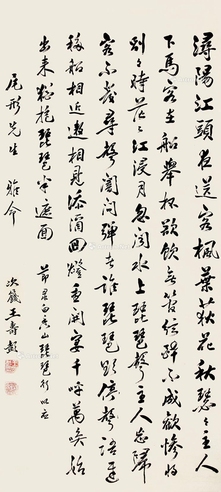 潯陽江頭夜送客楓葉荻花秋瑟瑟主人
下馬客在船舉杯欲飲無管弦醉不成歡慘將
別別時茫茫江浸月忽聞水上琵琶聲主人忘歸
客不發尋聲闇問彈者誰琵琶聲停欲語遲
移船相近邀相見添酒回燈重開宴千呼萬喚始
出來猶抱琵琶半遮面
節君白香山琵琶行以應
尾形先生 雅介
次籛王壽彭